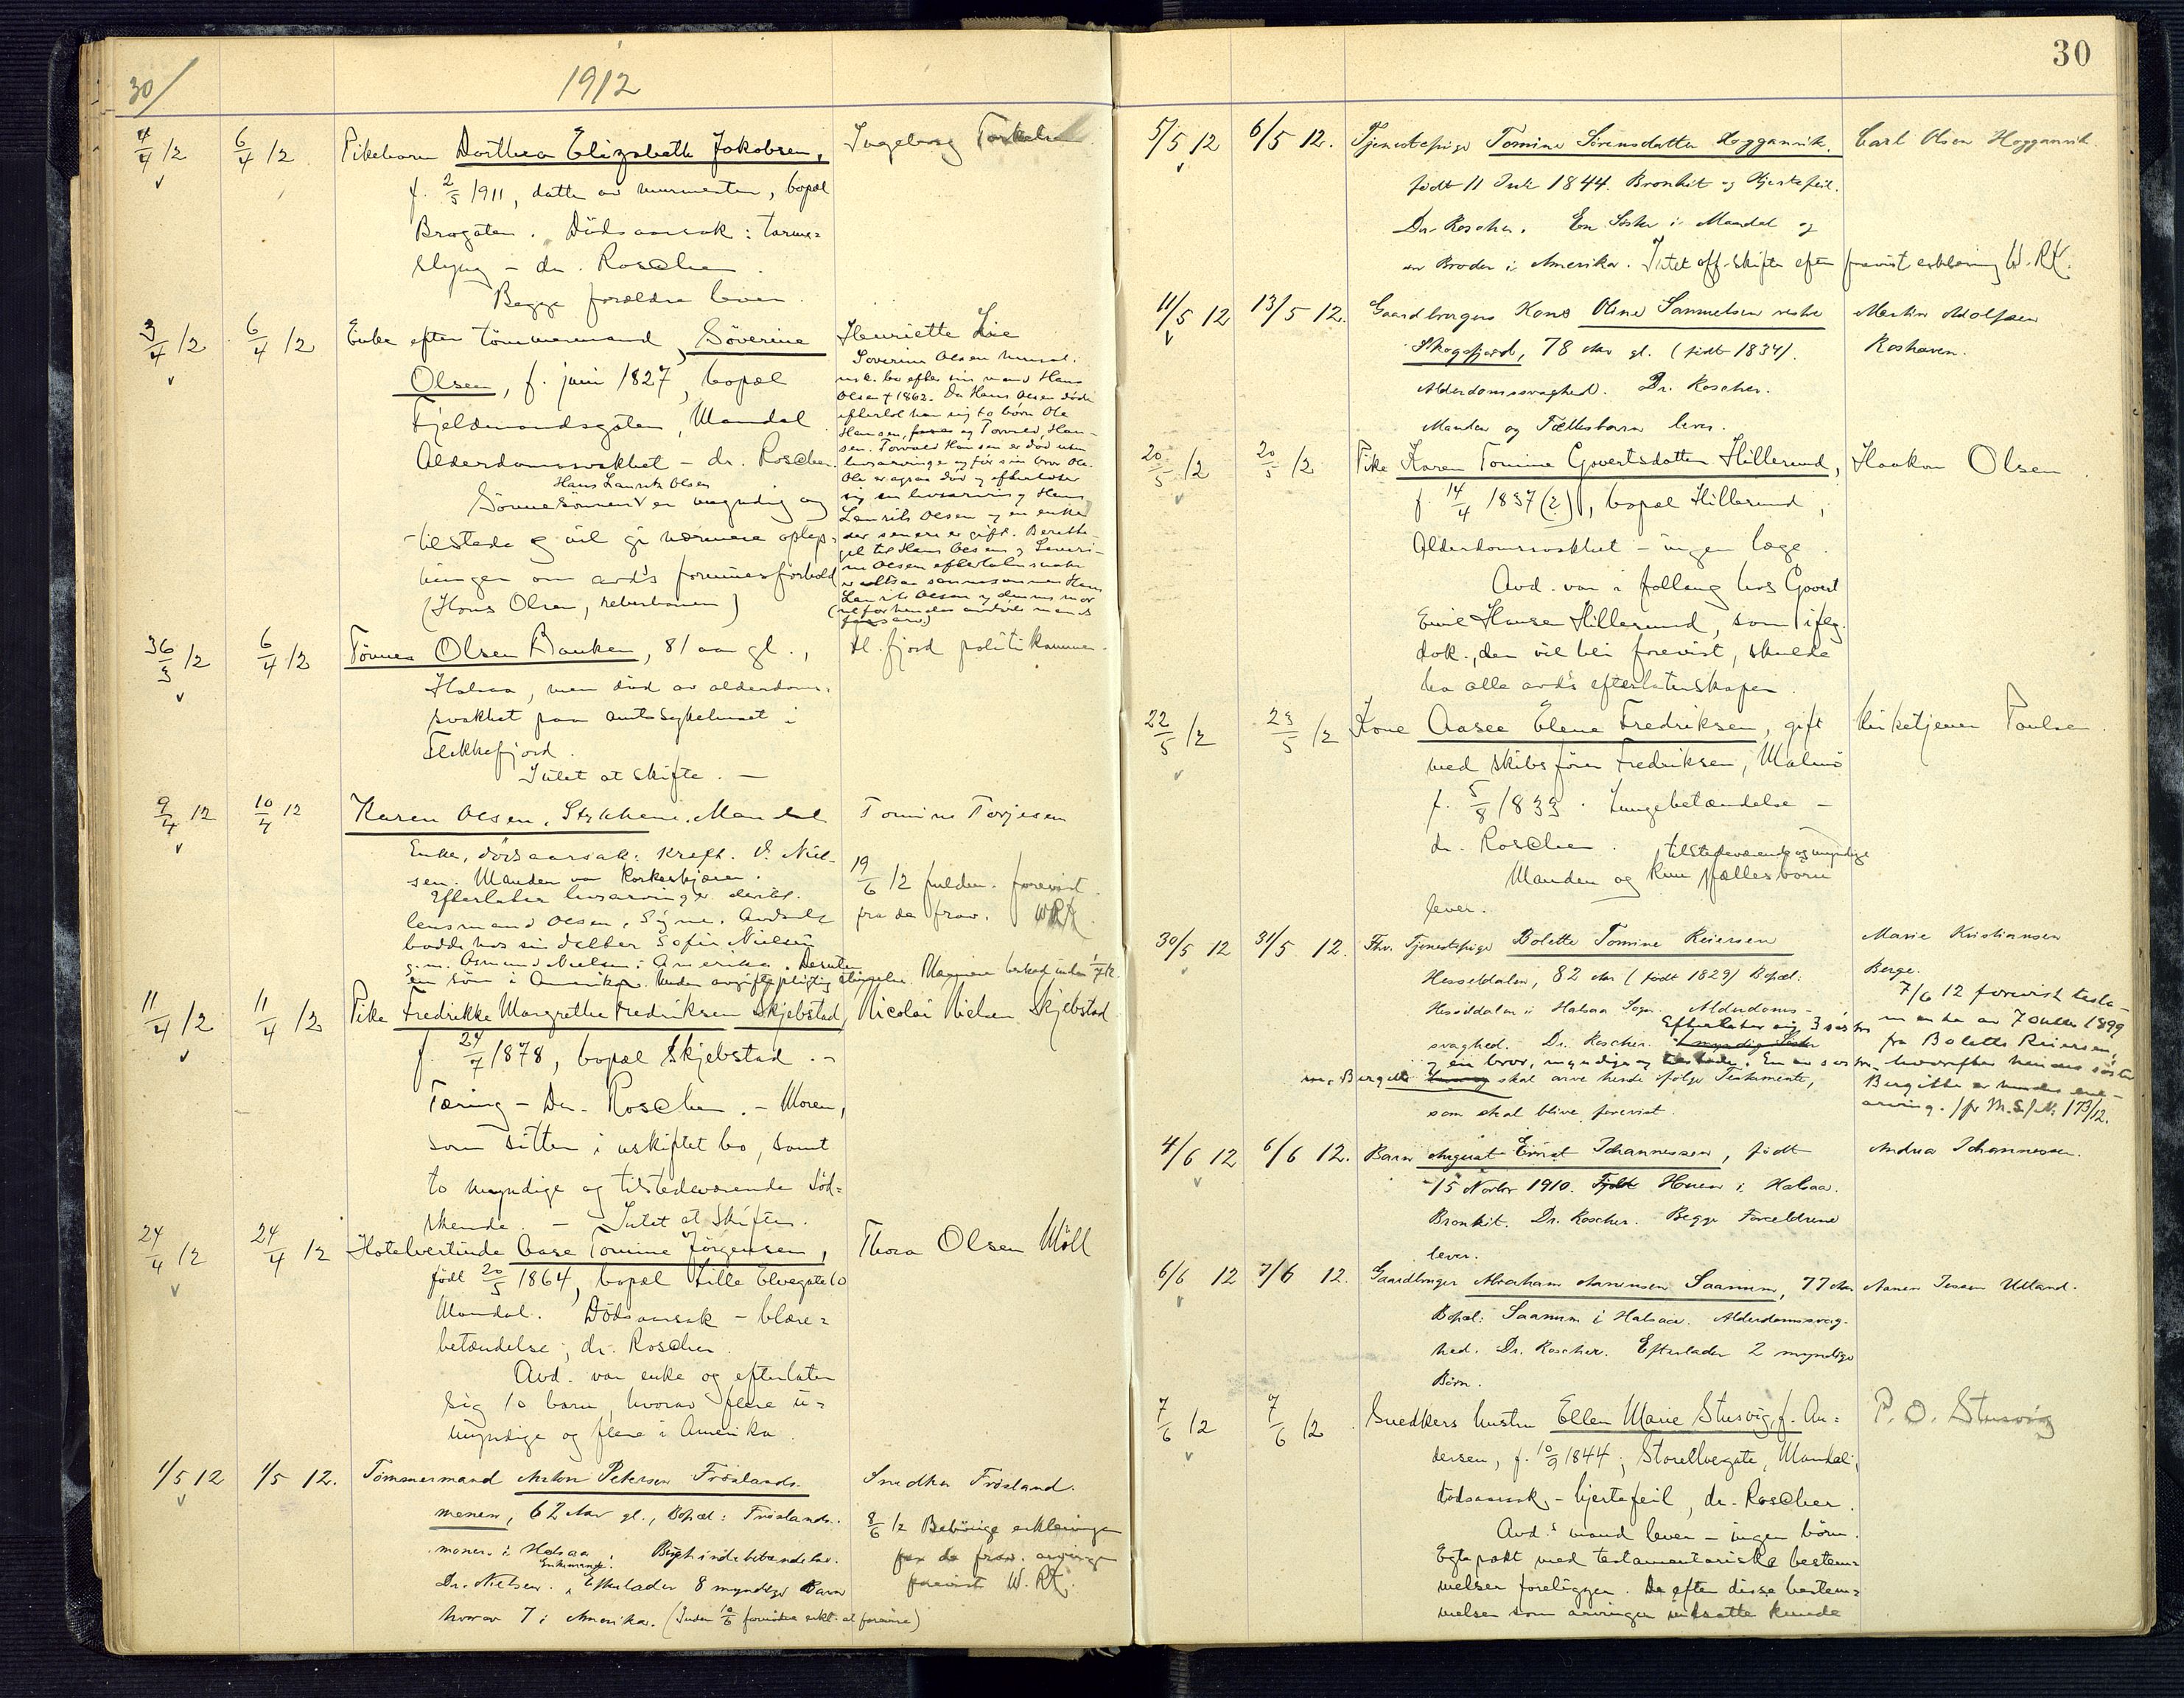 30/
1912
4/4 12 6/4 12 Pikebarn Dorthea Elizabeth Jakobsen, Ingeborg
f. 2/5 1911, datter av murmester, bopæl
Brogaten. Dødsaarsak: tarme=
slyng - dr. Roscher.
Begge forældre lever.
3/4 12 6/4 12 Enke efter tömmermand, Söverine Henriette Lie
Olsen, f. juni 1827, bopæl
Fjeldmandsgaten, Mandal
Alderdomssvakhet - dr. Roscher.
Hans Lauritz Olsen
Sönnesönnen er umyndig og
tilstede og vil gi nærmere oplys=
ninger om avd's formuesforhold
(Hans Olsen, reberbanen)
Soverine Olsen hensat.
i usk. bo efter sin mand Hans
Olsen † 1862. Da Hans Olsen döde
efterlot han sig to börn Ole
Hansen, og Torvald Han-
sen. Torvald Hansen er död uten
livsarvinger og för sin bror Ole.
Ole er ogsaa död og efterlater
sig en livsarving Hans
Laurits Olsen og en enke
der senere er gift. Beretti-
get til Hans Olsens og Severi-
ne Olsens efterladenskaber
er altsaa sønnesønnen Hans
Laurits Olsen og dennes mor
36/3 12 6/4 12 Tönnes Olsen Banken, 81 aar gl., Fl.fjord politikammer.
Halsaa, men död av alderdoms=
svakhet paa amtssykehuset i
Flekkefjord.
Intet at skifte. —
9/4 12 10/4 12 Karen Olsen, Mandal Tomine Torjesen
Enke, dödsaarsak: Kreft. D. Niel-
sen. Manden var
Efterlater livsarvinger deribl.
lensmand Olsen, Avdöde
bodde hos sin datter Sofie Nielsen
g.m. Osmund Nielsen i Amerika. Desuten
en sön i Amerika.
19/6 12 forevist
fra de frav. WRK
11/4 12 11/4 12 Pike Fredrikke Margrethe Fredriksen Skjebstad, Nicolai Nielsen Skjebstad
f. 24/7 1878, bopæl Skjebstad. -
Tæring - Dr. Roscher. - Moren,
som sitter i uskiftet bo, samt
to myndige og tilstedeværende söd=
skende. — Intet at skifte.
24/4 12 24/4 12 Hotelvertinde Aase Tomine Jörgensen, Thora Olsen Möll
född 20/5 1864, bopæl Lille Elvegate 10
Mandal. Dödsaarsak - blære=
betændelse; dr. Roscher.
Avd. var enke og efterlater
sig 10 barn, hvorav flere u=
myndige og flere i Amerika.
1/5 12 1/5 12. Tömmermand Anton Petersen Fröslands- Snedker Frösland.
monen, 62 Aar gl., Bopæl: Fröslands-
monen i Halsaa. Bughindebetændelse.
Enkemand.
Dr. Nielsen. Efterlader 8 myndige Barn
hvorav 7 i Amerika.
8/6 12 Behörige erklæringer
fra de frav. arvinger
forevist W. RK.
30
5/5 12 6/5 12. Tjenestepige Tomine Sörensdatter Hogganvik. Carl Olsen Hogganvik.
födt 11 Juli 1844. Bronkit og Hjertefeil.
Dr. Roscher. En Söster i Mandal og
en Broder i Amerika. Intet off. skifte efter forevist erklæring W. RK.
11/5 12 13/5 12. Gaardbrugers Kone Oline Samuelsen Martin Adolfsen
Skogsfjord, 78 Aar gl. (födt 1834). Roshaven.
Alderdomssvaghed. Dr. Roscher.
Manden og Fællesbarn lever.
20/5 12 20/5 12 Pike Karen Tomine Govertsdatter Hillerund, Haakon Olsen
f. 14/4 1837 (?), bopæl Hillerund,
Alderdomssvakhet - ingen læge.
Avd. var i follaug hos Govert
Emil Hansen Hillerund, som ifölg.
dok., der vil bli forevist, skulde
ha alle avd's efterlatenskaper.
22/5 12 23/5 12 Kone Aasee Elene Fredriksen, gift Kirketjener Paulsen.
med skibsförer Fredriksen, Malmö
f. 5/8 1833. Lungebetændelse -
dr. Roscher. tilstedeværende og myndige
Manden og kun fællesbörn
lever.
30/5 12 31/5 12. Fhv. Tjenestepige Bolette Tomine Reiersen Marie Kristiansen
Hesseldalen, 82 Aar (födt 1829) Bopæl. Berge.
Hesseldalen i Halsaa Sogn. Alderdoms-
svaghed. Dr. Roscher. Efterlater sig 3 söstre
og en bror, myndige og tilstede. En av söstrene
Bergitte skal arve hende ifölge Testamente,
som skal blive forevist.
7/6 12 forevist testa-
mente av 7 1899
fra Bolette Reiersen,
hvorefter hendes söster
Birgitte er hendes ene-
arving.
4/6 12 6/6 12. Barn August Ernst Johannessen, födt Andrea Johannessen.
15 Novbr 1910. Halsaa.
Bronkit. Dr. Roscher. Begge Forældrene
lever.
6/6 12 7/6 12. Gaardbruger Abraham Aanensen Saanum, 77 Aar Aanen Udland.
Bopæl: Saanum i Halsaa. Alderdomssvag-
hed. Dr. Roscher. Efterlader 2 myndige
Börn.
7/6 12 7/6 12. Snedkers hustru Ellen Marie Stusvig, f. An= P. O. Stusvig
dersen, f. 10/9 1844; Storelvegate, Mandal;
dödsaarsak, - hjertefeil, dr. Roscher.
Avd.s mand lever - ingen börn.
Egtepakt med testamentariske bestem=
melser foreligger. De efter disse bestem=
melser som arvinger indsatte kunde